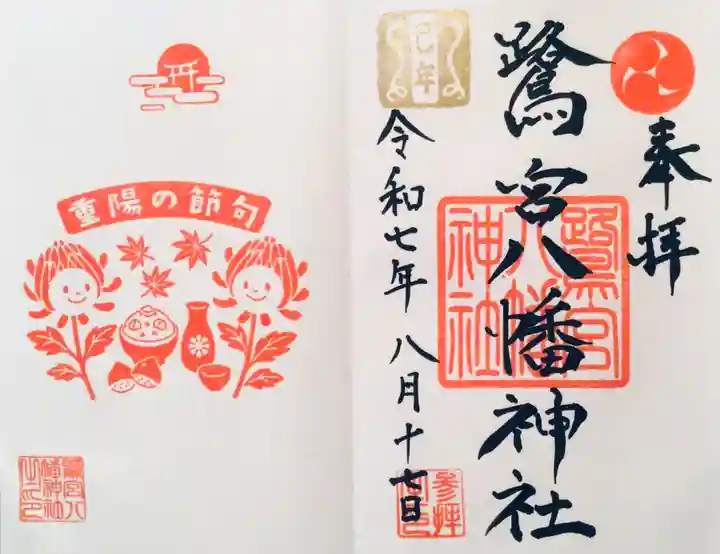 奉拝
鷺宮八幡神社
鷺宮八幡神社
巳年
令和七年八月十七日
重陽の節句
鷺宮八
幡神社
之印